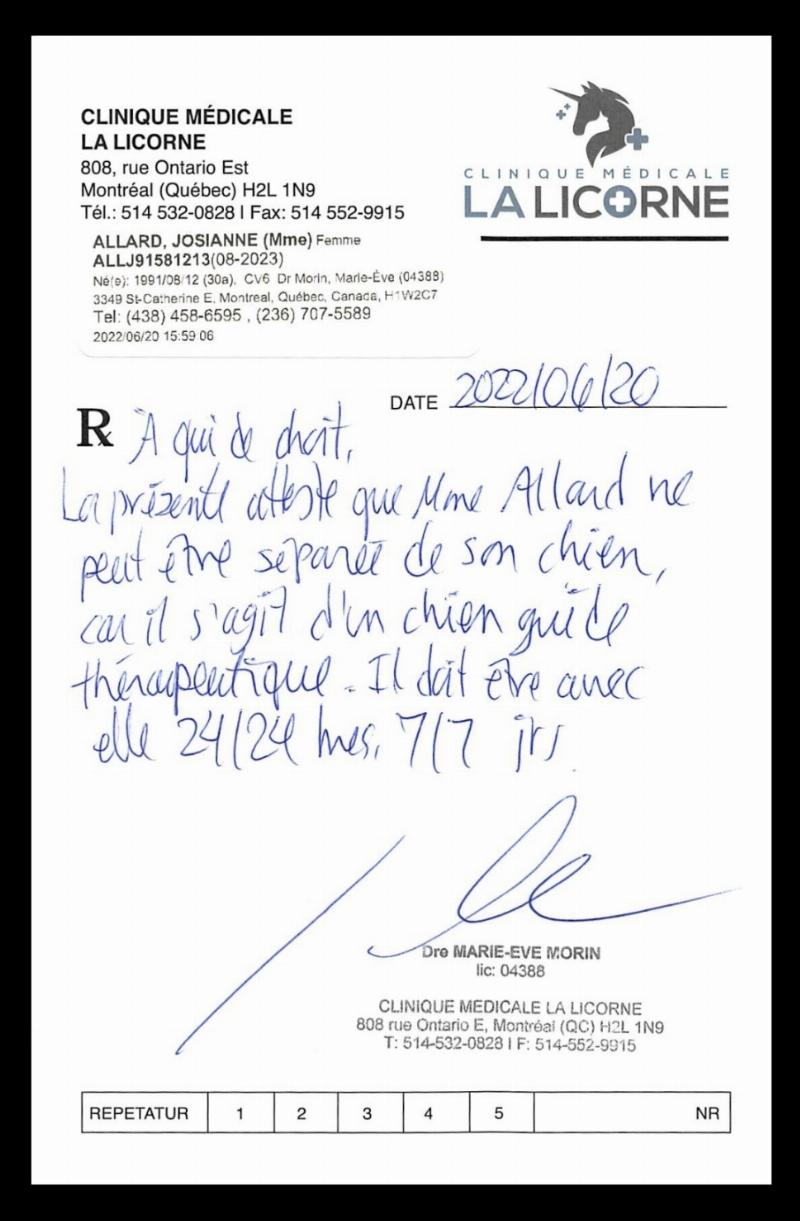 CLINIQUE MÉDICALE
LA LICORNE
808, rue Ontario Est
Montréal (Québec) H2L 1N9
Tél.: 514 532-0828 | Fax: 514 552-9915
CLINIQUE MÉDICALE
LA LICORNE
ALLARD, JOSIANNE (Mme) Femme
ALLJ91581213(08-2023)
Né(e): 1991/08/12 (30a), CV6 Dr Morin, Marie-Ève (04388)
3349 St-Catherine E, Montreal, Québec, Canada, H1W2C7
Tel: (438) 458-6595 , (236) 707-5589
2022/06/20 15:59 06
DATE 2022/06/20
Rx À qui de droit,
La présente atteste que Mme Allard ne
peut être séparée de son chien,
car il s'agit d'un chien guide
thérapeutique. Il doit être avec
elle 24/24 hres, 7/7 jrs
Dre MARIE-EVE MORIN
lic: 04388
CLINIQUE MEDICALE LA LICORNE
808 rue Ontario E, Montréal (QC) H2L 1N9
T: 514-532-0828 | F: 514-552-9915
REPETATUR 1 2 3 4 5 NR